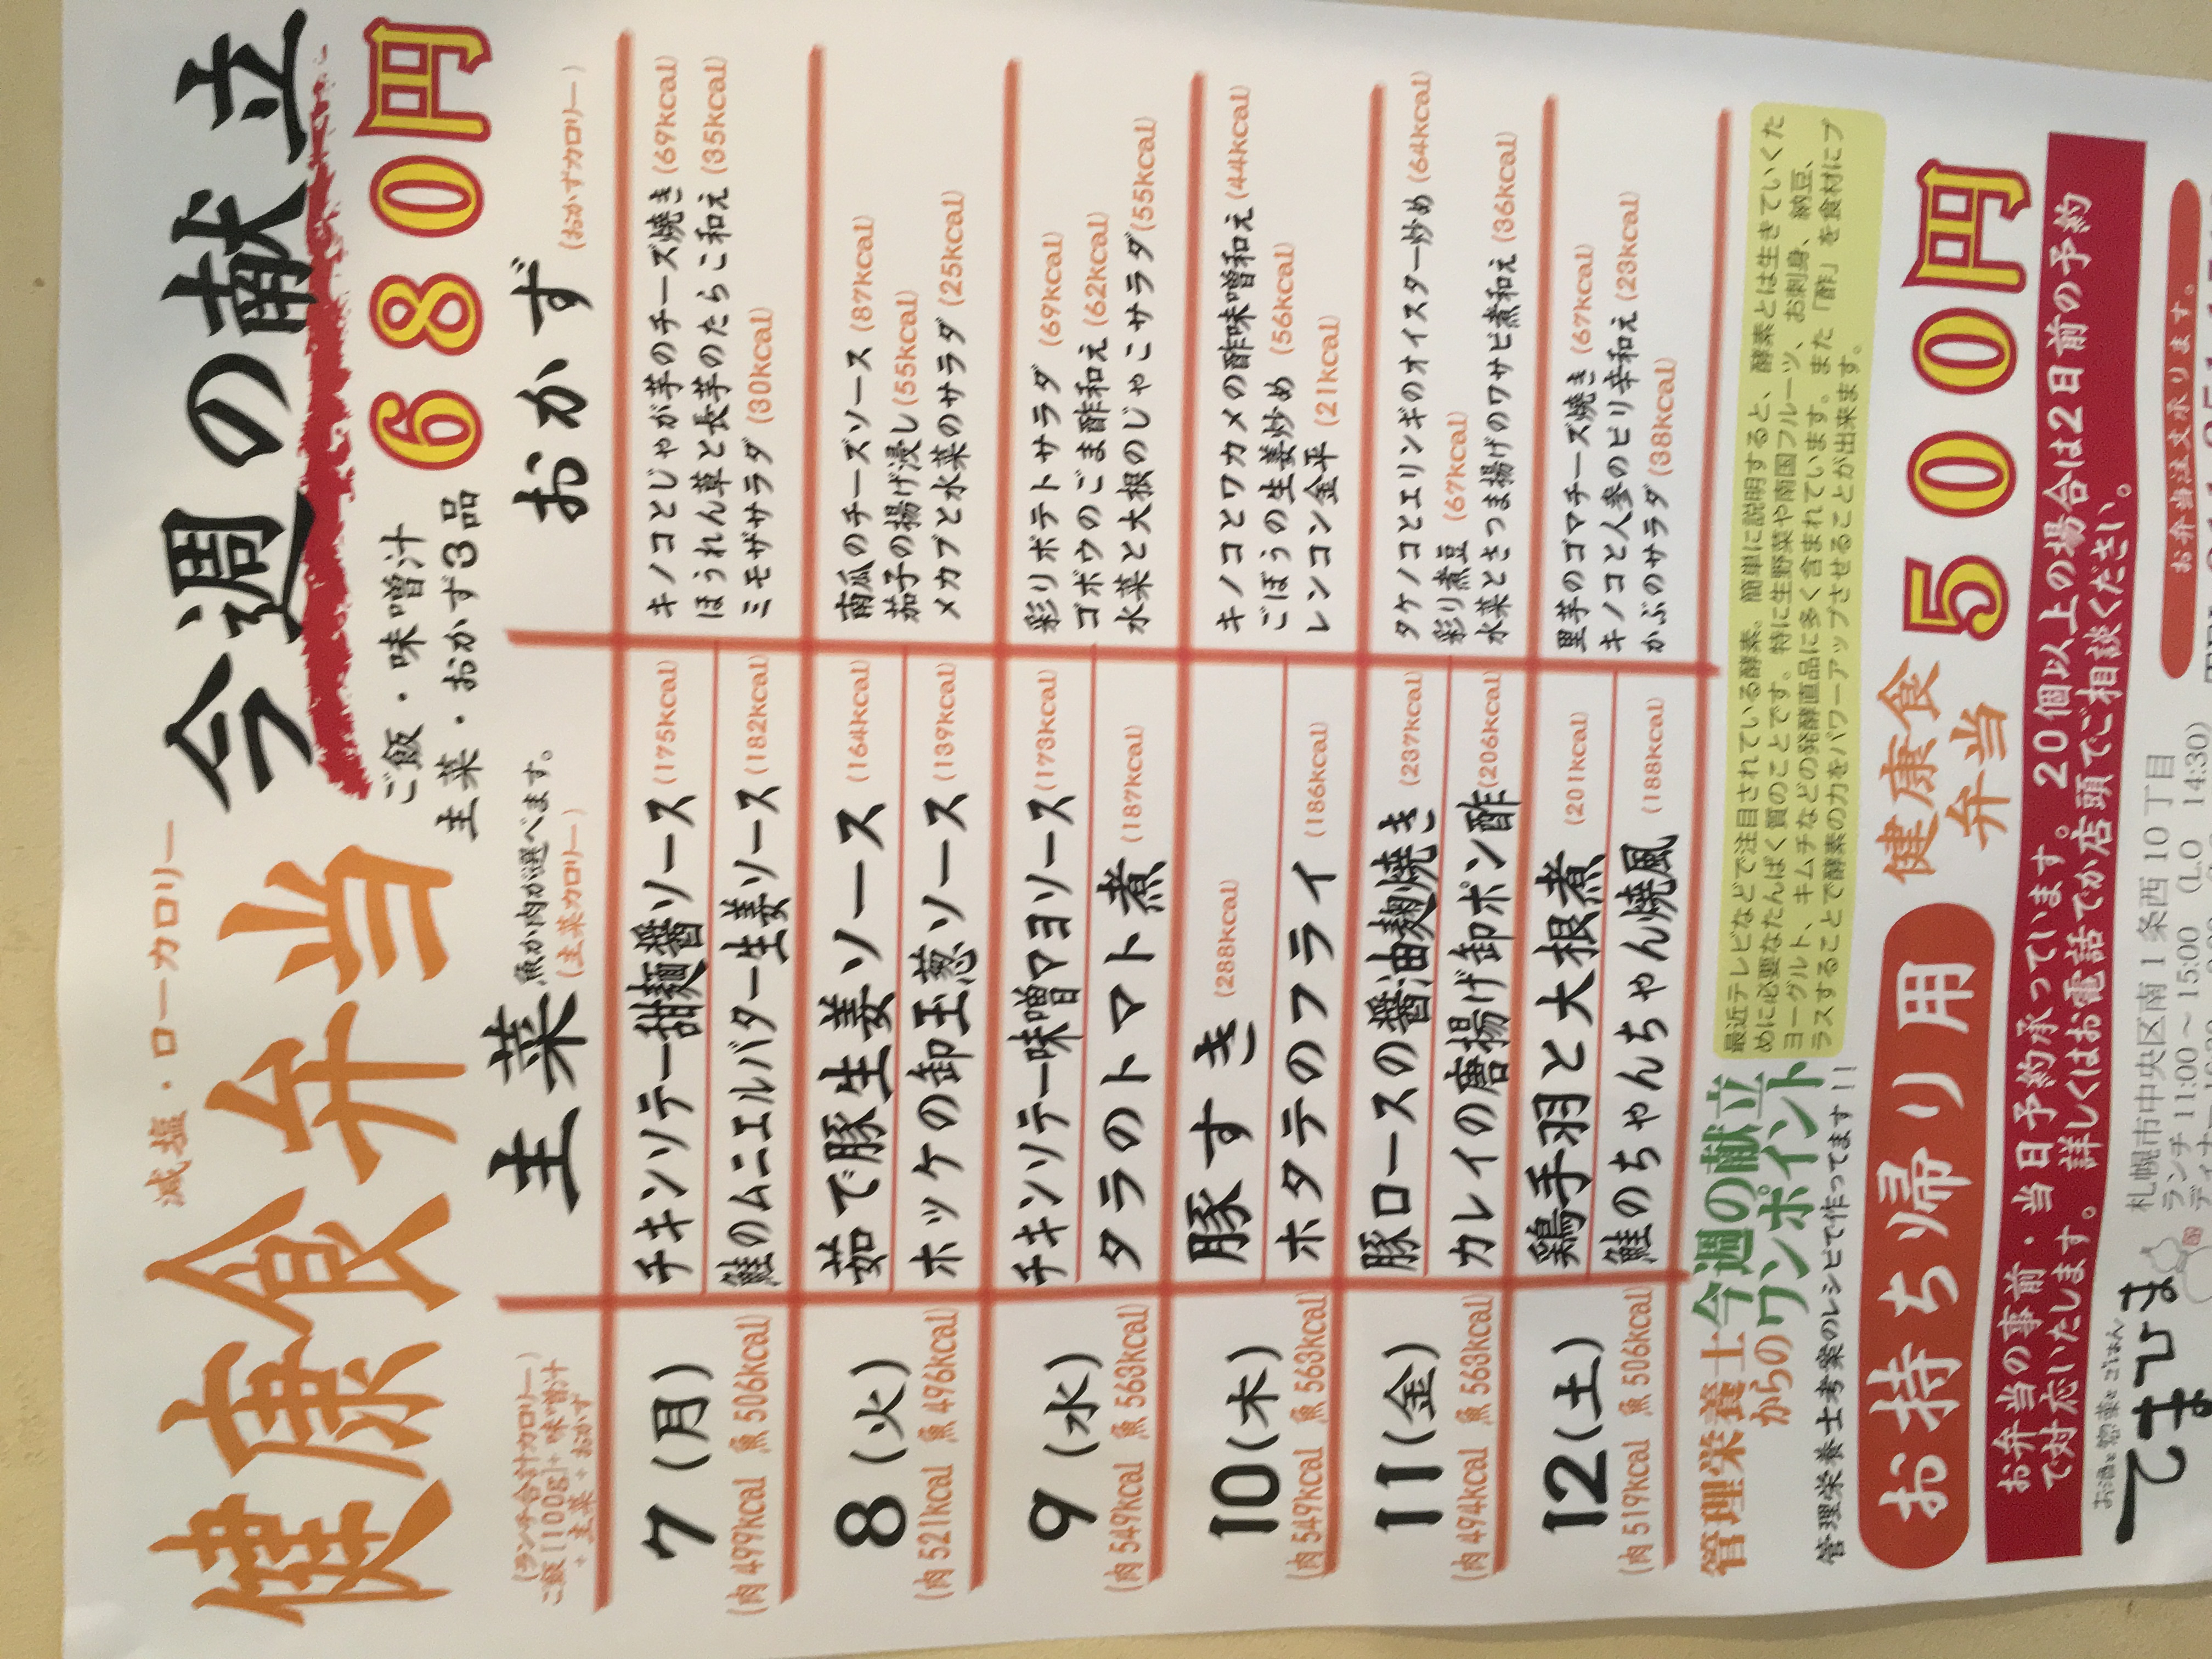 減塩・ローカロリー
健康食弁当
今週の献立
ご飯・味噌汁
主菜・おかず3品
680円
(ランチ合計カロリー)
ご飯[100g]+味噌汁
+主菜+おかず
主菜 魚か肉が選べます。
(主菜カロリー)
おかず (おかずカロリー)
7(月)
(肉499kcal 魚506kcal)
チキンソテー甜麺醤ソース (175kcal)
鮭のムニエルバター生姜ソース (182kcal)
キノコとじゃが芋のチーズ焼き (69kcal)
ほうれん草と長芋のたらこ和え (35kcal)
ミモザサラダ (30kcal)
8(火)
(肉521kcal 魚496kcal)
茹で豚生姜ソース (164kcal)
ホッケの卸玉葱ソース (139kcal)
南瓜のチーズソース (87kcal)
茄子の揚げ浸し (55kcal)
メカブと水菜のサラダ (25kcal)
9(水)
(肉549kcal 魚563kcal)
チキンソテー味噌マヨソース (173kcal)
タラのトマト煮 (187kcal)
彩りポテトサラダ (69kcal)
ゴボウのごま酢和え (62kcal)
水菜と大根のじゃこサラダ (55kcal)
10(木)
(肉549kcal 魚563kcal)
豚すき (288kcal)
ホタテのフライ (186kcal)
キノコとワカメの酢味噌和え (44kcal)
ごぼうの生姜炒め (56kcal)
レンコン金平 (21kcal)
11(金)
(肉494kcal 魚563kcal)
豚ロースの醤油麹焼き (237kcal)
カレイの唐揚げ卸ポン酢 (206kcal)
タケノコとエリンギのオイスター炒め (64kcal)
彩り煮豆 (67kcal)
水菜とさつま揚げのワサビ煮和え (36kcal)
12(土)
(肉519kcal 魚506kcal)
鶏手羽と大根煮 (201kcal)
鮭のちゃんちゃん焼風 (188kcal)
里芋のゴマチーズ焼き (67kcal)
キノコと人参のピリ辛和え (23kcal)
かぶのサラダ (38kcal)
管理栄養士
からの
今週の献立
ワンポイント
管理栄養士考案のレシピで作ってます!!
最近テレビなどで注目されている酵素。簡単に説明すると、酵素とは生きていくた
めに必要なたんぱく質のことです。特に生野菜や南国フルーツ、お刺身、納豆、
ヨーグルト、キムチなどの発酵直品に多く含まれています。また「酢」を食材にプ
ラスすることで酵素の力をパワーアップさせることが出来ます。
お持ち帰り用
健康食
弁当
500円
お弁当の事前・当日予約承っています。20個以上の場合は2日前の予約
で対応いたします。詳しくはお電話でか店頭でご相談ください。
お酒と惣菜とごはん
てまひま
札幌市中央区南1条西10丁目
ランチ 11:00~15:00 (L.O 14:30)
お弁当注文承ります。